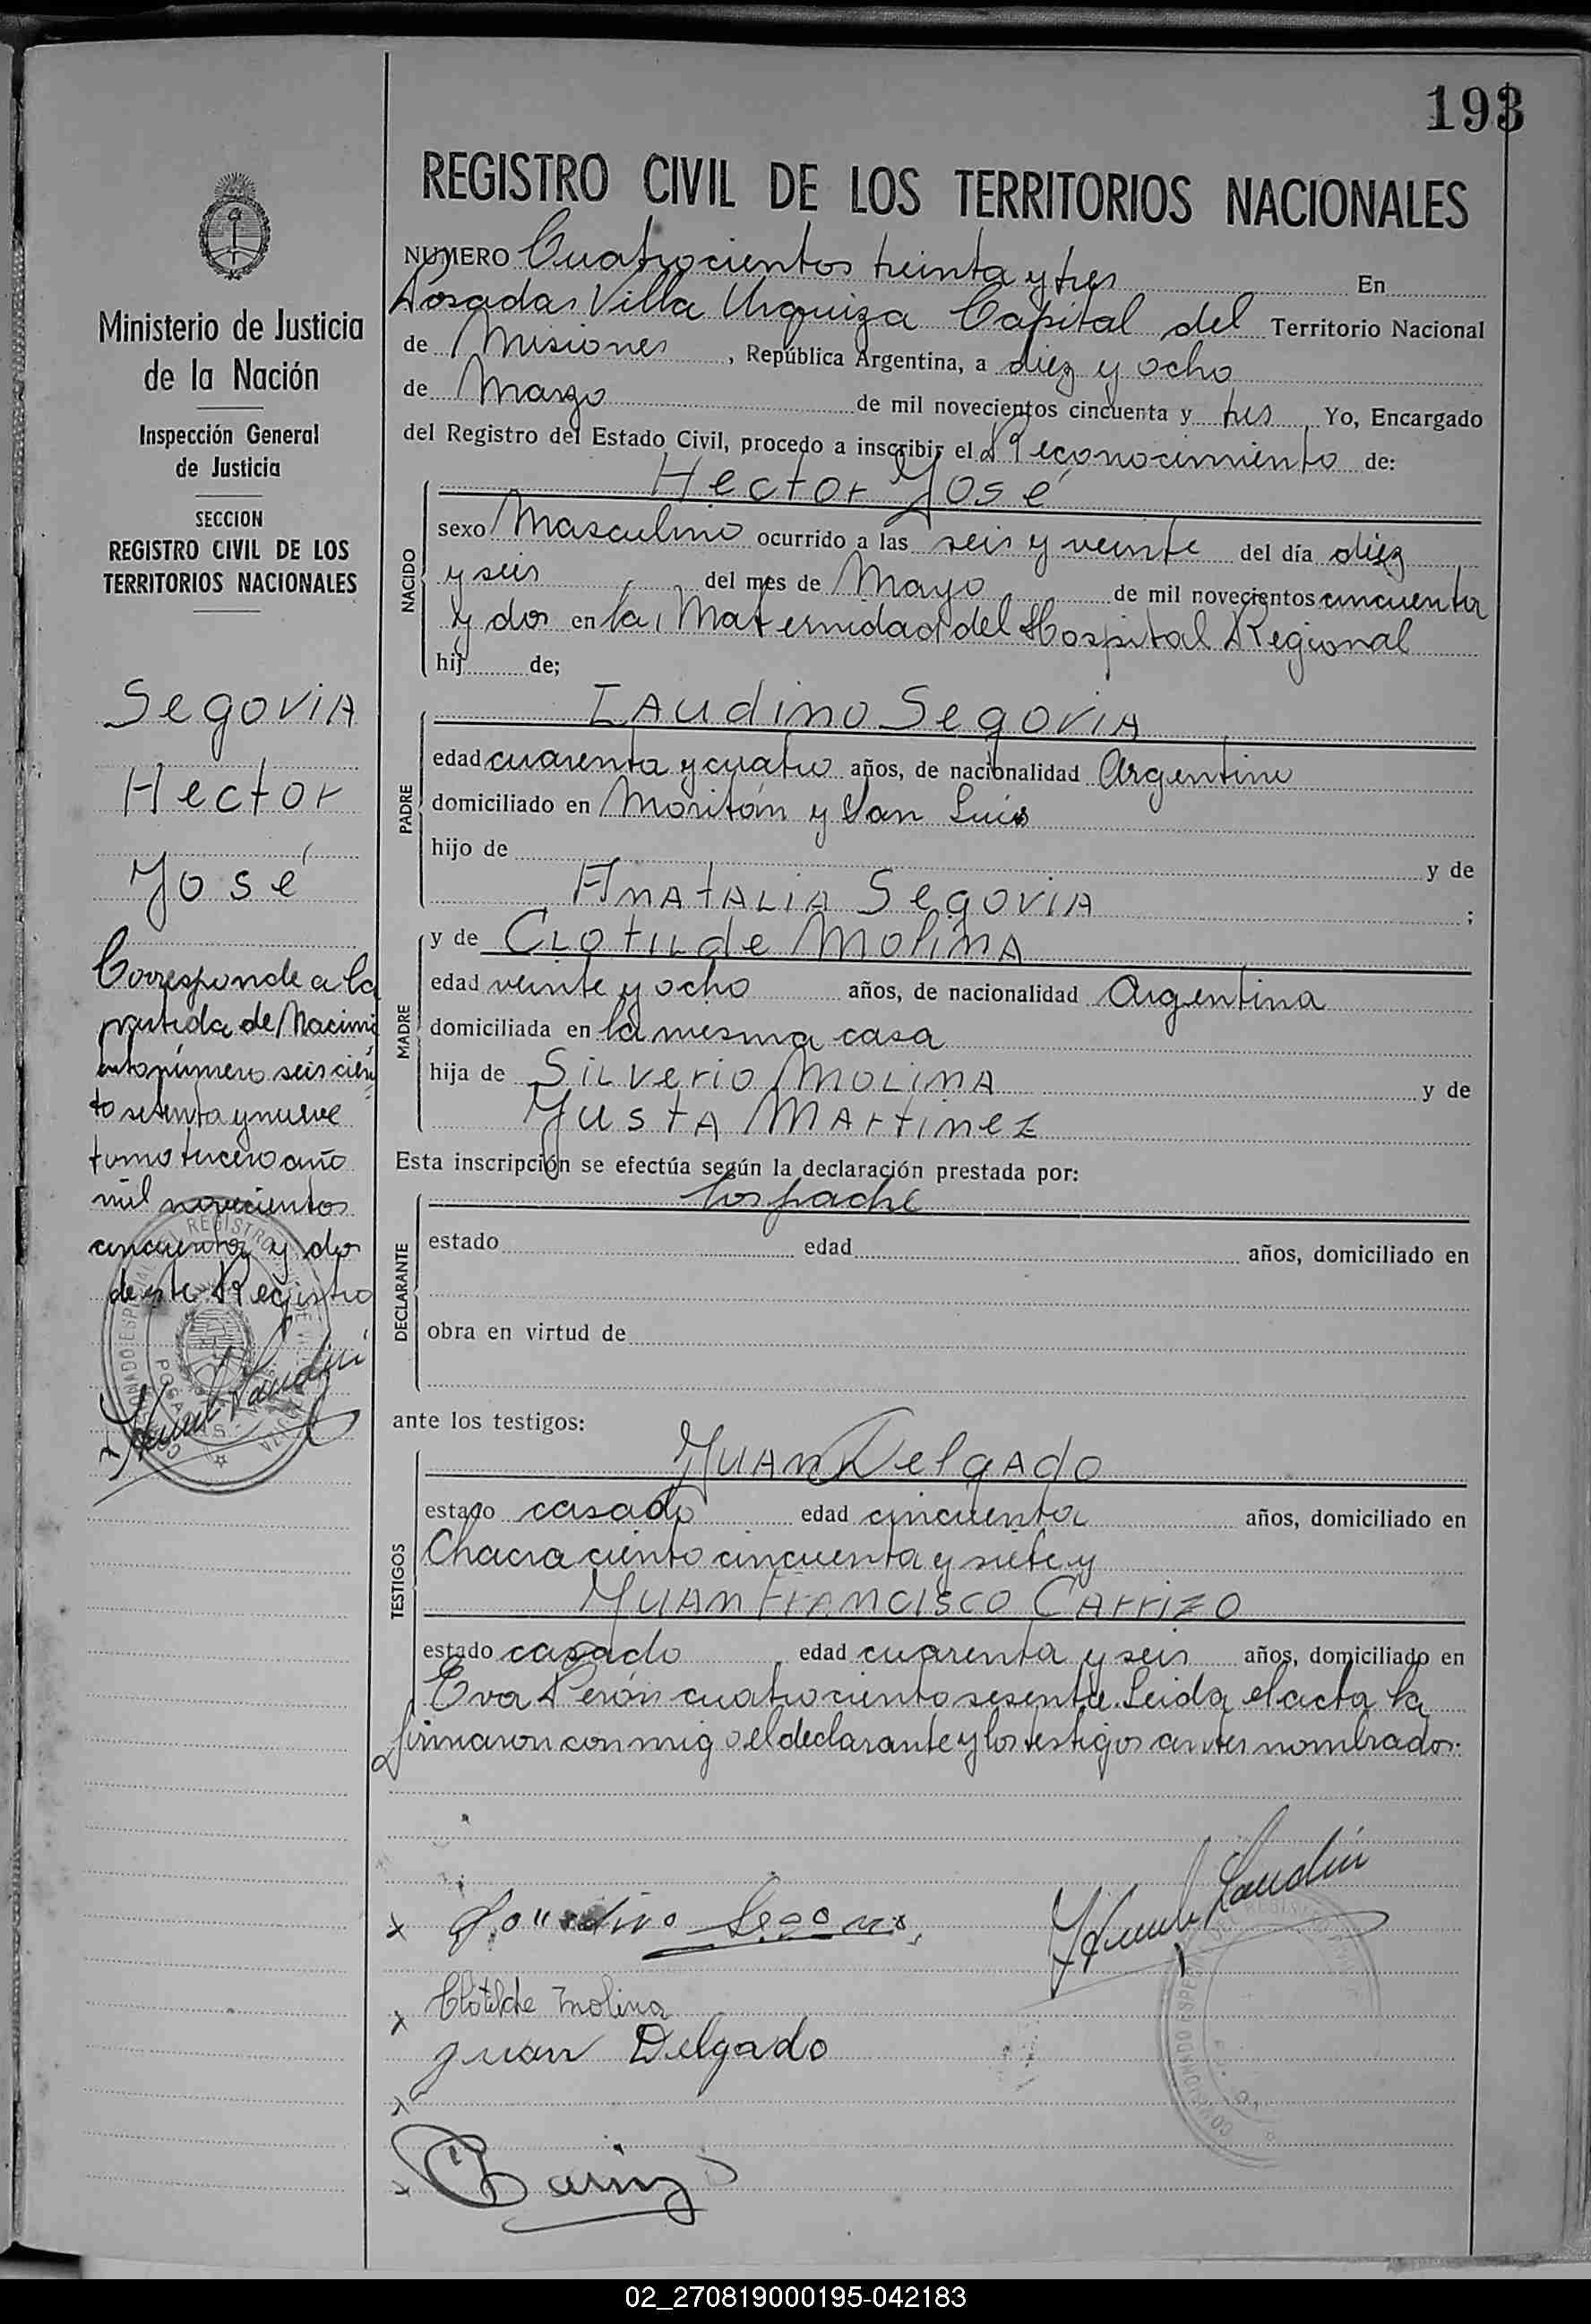 193
REGISTRO CIVIL DE LOS TERRITORIOS NACIONALES
NUMERO Cuatrocientos treinta y tres En
Posadas Villa Urquiza Capital del Territorio Nacional
de Misiones, República Argentina, a diez y ocho
de Marzo de mil novecientos cincuenta y tres, Yo, Encargado
del Registro del Estado Civil, procedo a inscribir el Reconocimiento de:
Hector José
NACIDO
sexo Masculino ocurrido a las seis y veinte del día diez
y seis del mes de Mayo de mil novecientos cincuenta
y dos en la Maternidad del Hospital Regional
hij de;
PADRE
Laudino Segovia
edad cuarenta y cuatro años, de nacionalidad Argentino
domiciliado en Moritán y San Luis
hijo de y de
Anatalia Segovia ;
MADRE
y de Clotilde Molina
edad veinte y ocho años, de nacionalidad Argentina
domiciliada en la mesma casa
hija de Silverio Molina y de
Justa Martinez
Esta inscripción se efectúa según la declaración prestada por:
DECLARANTE
los padre
estado edad años, domiciliado en
obra en virtud de
ante los testigos:
TESTIGOS
Juan Delgado
estado casado edad cincuenta años, domiciliado en
Chacra ciento cincuenta y siete y
Juan Francisco Carrizo
estado casado edad cuarenta y seis años, domiciliado en
Eva Perón cuatrociento sesenta. Leida el acta la
firmaron conmigo el declarante y los testigos antes nombrados.
Ministerio de Justicia
de la Nación
Inspección General
de Justicia
SECCION
REGISTRO CIVIL DE LOS
TERRITORIOS NACIONALES
Segovia
Hector
José
Corresponde a la
partida de Nacimi
ento número seis cien
to setenta y nueve
tomo tercero año
mil novecientos
cincuenta y dos
de este Registro
Clotilde Molina
Juan Delgado
02_270819000195-042183